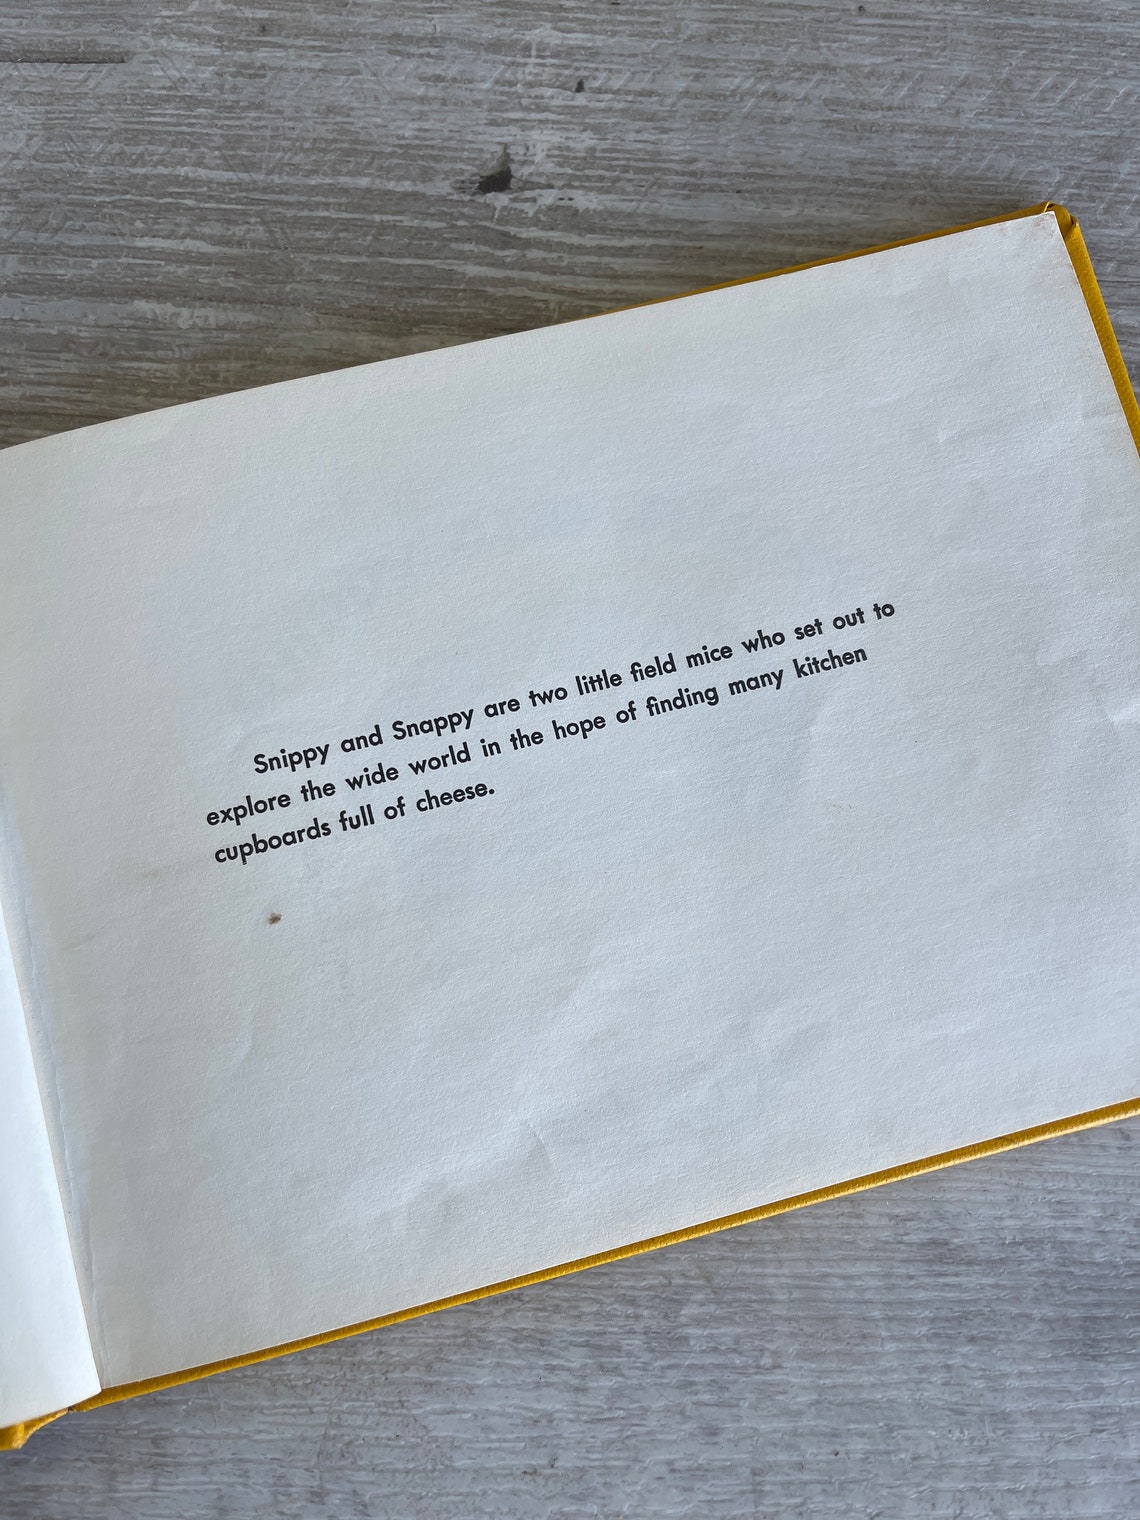 Snippy and Snappy are two little field mice who set out to
explore the wide world in the hope of finding many kitchen
cupboards full of cheese.